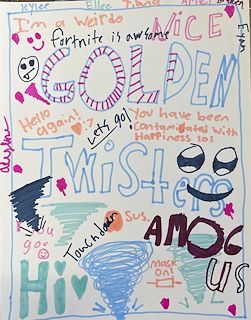 Kylee Ellee
I'm a weirdo
NiCE
fortnite is awesome
GOLDEN
Hello again! :)
Let's go!
You have been
Contaminated with
Happiness lol
Twisters
Touchdown
Sus.
AMOG
US
Mask
on!
Hi